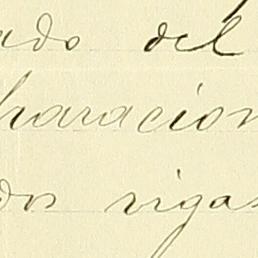 ado del
haracion
dos vigas